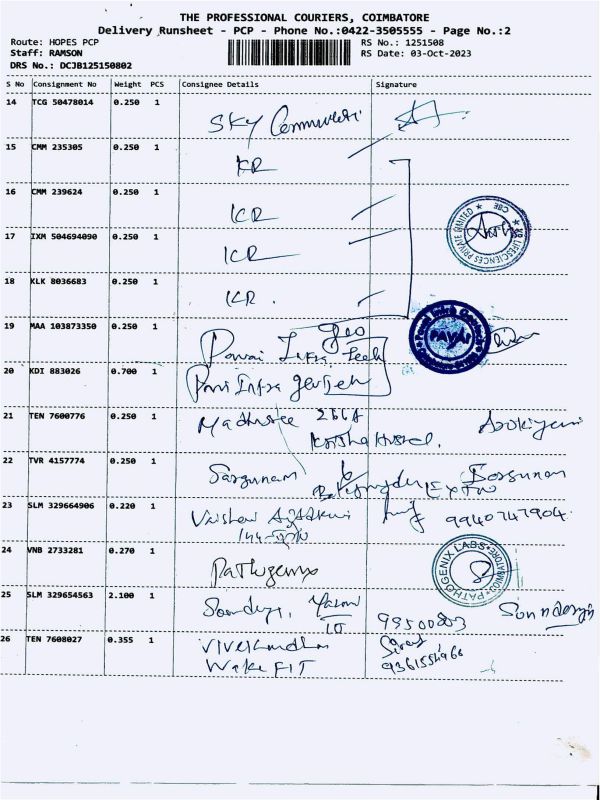 THE PROFESSIONAL COURIERS, COIMBATORE
Delivery Runsheet - PCP - Phone No.:0422-3505555 - Page No.:2
Route: HOPES PCP RS No.: 1251508
Staff: RAMSON RS Date: 03-Oct-2023
DRS No.: DCJB125150802
S No Consignment No Weight PCS Consignee Details Signature
14 TCG 50478014 0.250 1 SKY
15 CMM 235305 0.250 1 KR
16 CMM 239624 0.250 1 KR
17 IXM 504694090 0.250 1 KR
18 KLK 8036683 0.250 1 KR.
KR LIFESCIENCES PRIVATE LIMITED ★ CBE ★
19 MAA 103873350 0.250 1 Pavai Infra Geo Tech
PAVAI
20 KDI 883026 0.700 1 Pavai Infra Geotech
21 TEN 7600776 0.250 1 266A
22 TVR 4157774 0.250 1 Sargunam 6 Sargunam
23 SLM 329664906 0.220 1 Vaishna 9940747904.
24 VNB 2733281 0.270 1 Pathogenix
PATHOGENIX LABS ★ COIMBATORE ★
25 SLM 329654563 2.100 1
26 TEN 7608027 0.355 1 Vivekanandhan
Wake FIT